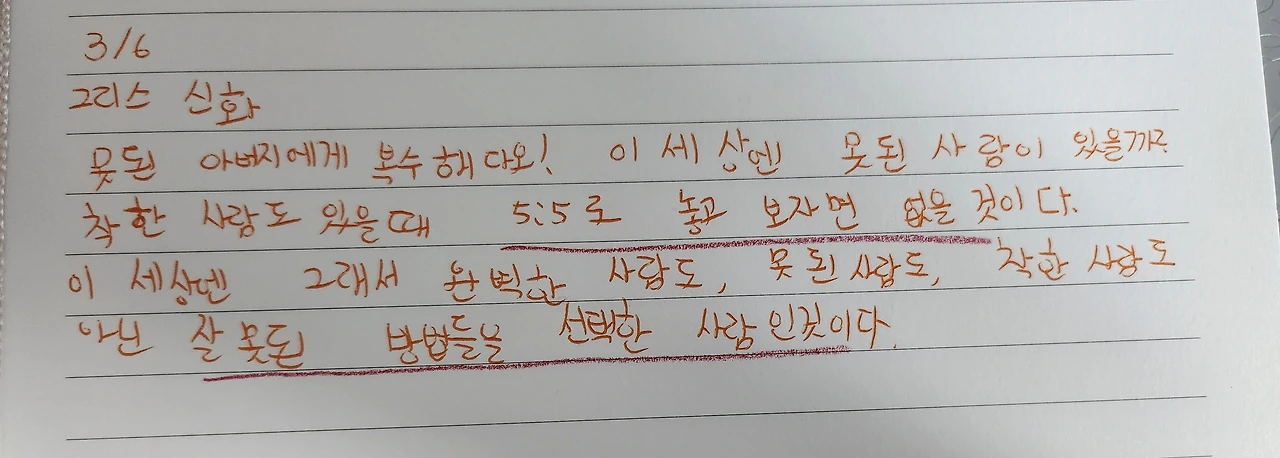 3/6
그리스 신화
못된 아버지에게 복수해다오! 이 세상엔 못된 사람이 있을까?
착한 사람도 있을때 5:5로 놓고 보자면 없을 것이다.
이 세상엔 그래서 완벽한 사람도, 못된사람도, 착한 사람도
아닌 잘못된 방법들을 선택한 사람인것이다.